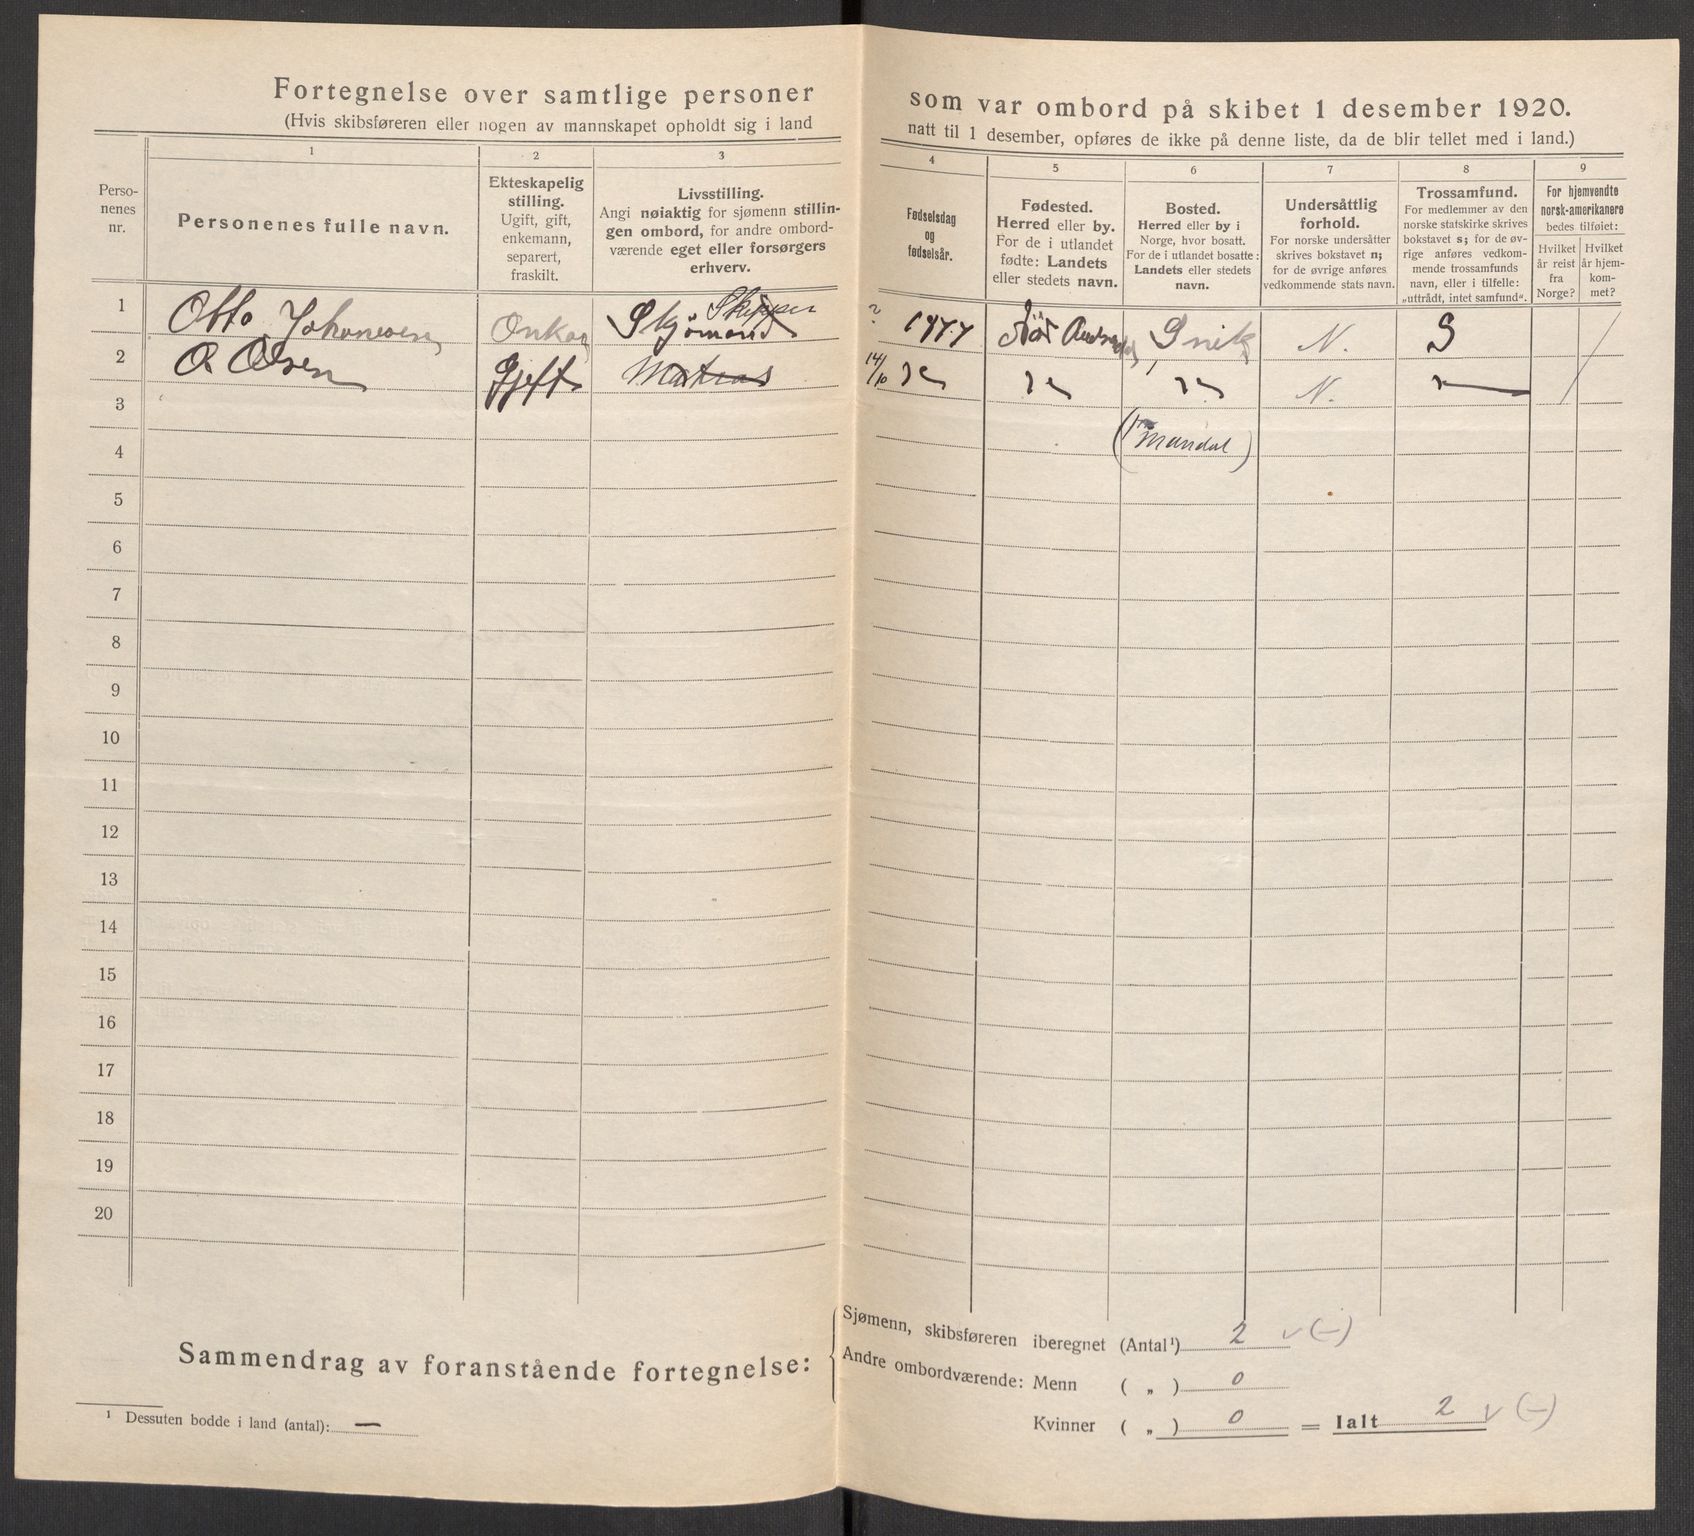 Fortegnelse over samtlige personer som var ombord på skibet 1 desember 1920.
(Hvis skibsføreren eller nogen av mannskapet opholdt sig i land natt til 1 desember, opføres de ikke på denne liste, da de blir tellet med i land.)
Perso-
nenes
nr.
1
Personenes fulle navn.
2
Ekteskapelig
stilling.
Ugift, gift,
enkemann,
separert,
fraskilt.
3
Livsstilling.
Angi nøiaktig for sjømenn stillin-
gen ombord, for andre ombord-
værende eget eller forsørgers
erhverv.
4
Fødselsdag
og
fødselsår.
5
Fødested.
Herred eller by.
For de i utlandet
fødte: Landets
eller stedets navn.
6
Bosted.
Herred eller by i
Norge, hvor bosatt.
For de i utlandet bosatte:
Landets eller stedets
navn.
7
Undersåttlig
forhold.
For norske undersåtter
skrives bokstavet n;
for de øvrige anføres
vedkommende stats navn.
8
Trossamfund.
For medlemmer av den
norske statskirke skrives
bokstavet s; for de øv-
rige anføres vedkom-
mende trossamfunds
navn, eller i tilfelle:
„uttrådt, intet samfund".
9
For hjemvendte
norsk-amerikanere
bedes tilføiet:
Hvilket
år reist
fra
Norge?
Hvilket
år hjem-
kom-
met?
1 Otto Johannesen Skipper ? N. S
2 O Olsen Gjeft Matros 14/10 N.
3
4 (Mandal)
5
6
7
8
9
10
11
12
13
14
15
16
17
18
19
20
Sammendrag av foranstående fortegnelse:
Sjømenn, skibsføreren iberegnet (Antal¹) 2 v (—)
Andre ombordværende: Menn ( „ ) 0
Kvinner ( „ ) 0 = Ialt 2 v (—)
¹ Dessuten bodde i land (antal): —